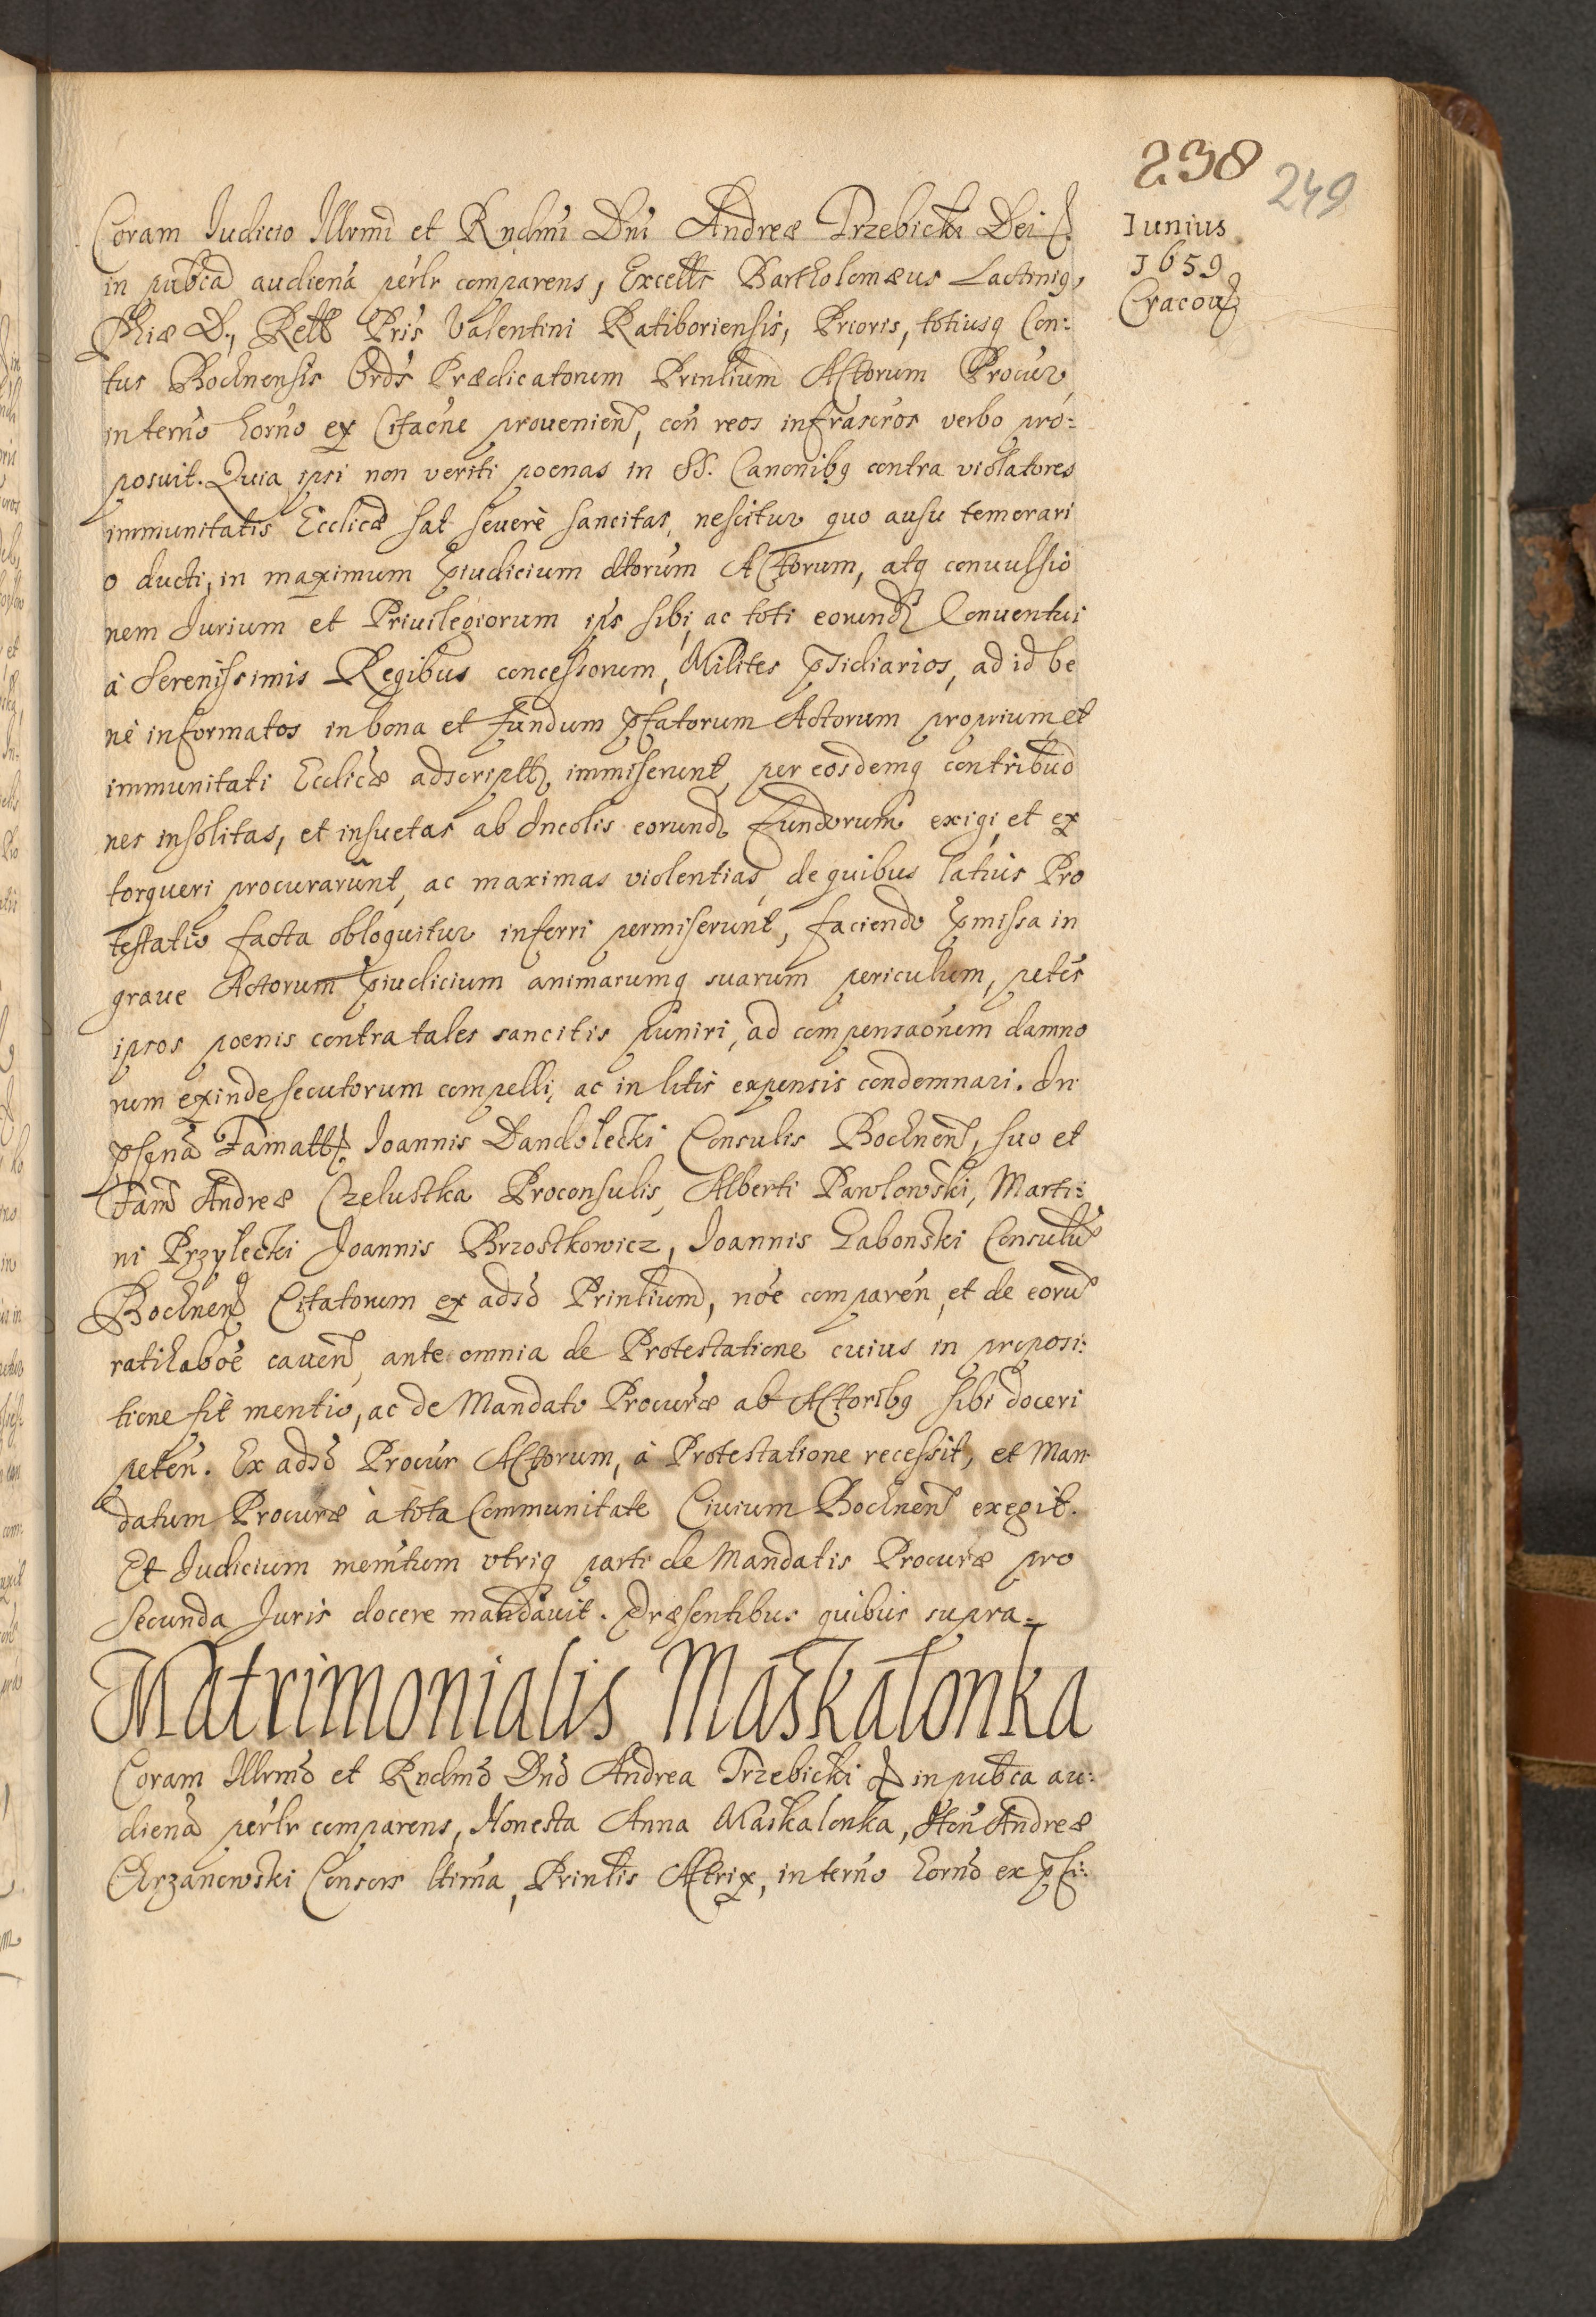 238
249
Iunius
1659
Cracou
Coram Iudicio Illrmi et Rndmi Dni Andreæ Trzebicki Dei
in pubca audiena perlr comparens, Excells Bartholomæus Lactinig,
Phiæ D., Rell Pris Valentini Ratiboriensis, Prioris, totiusq Con:
tus Bochnensis Ords Prædicatorum Prinlium Actorum Procur,
in terno horno ex Citaone prouenien, con reos infrascros verbo pro:
posuit. Quia ipsi non veriti poenas in SS. Canonibq contra violatores
immunitatis Ecclicæ sat seuerè sancitas, nescitur quo ausu temerari
o ducti, in maximum piudicium dtorum Actorum, atq conuulsio
nem Iurium et Priuilegiorum ips sibi, ac toti eorund Conuentui
à Serenissimis Regibus concessorum, Milites psidiarios, ad id be
nè informatos in bona et fundum pfatorum Actorum proprium et
immunitati Ecclicæ adscriptt immiserunt, per eosdemq contribuo
nes insolitas, et insuetas ab Incolis eorund Fundorum exigi, et ex
torqueri procurarunt, ac maximas violentias, de quibus latius Pro
testatio facta obloquitur inferri permiserunt, faciendo pmissa in
graue Actorum piudicium animarumq suarum periculum, petes
ipsos poenis contra tales sancitis puniri, ad compensaonem damno
rum exinde secutorum compelli, ac in litis expensis condemnari. In
psena Famatt Ioannis Dandolecki Consulis Bochnen, suo et
Fam Andreæ Czelustka Proconsulis, Alberti Pawlowski, Marti:
ni Przylecki Ioannis Brzostkowicz, Ioannis Labonski Consulu
Bochnen Citatorum ex adso Prinlium, noe comparen, et de eoru
ratihaboe cauen, ante omnia de Protestatione cuius in proposi:
tione fit mentio, ac de Mandato Procuræ ab Actoribq sibi doceri
peten. Ex adso Procur Actorum, à Protestatione recessit, et Man
datum Procuræ à tota Communitate Ciuium Bochnen exegit.
Et Iudicium memtum vtriq parti de Mandatis Procuræ pro
secunda Iuris docere mandauit. Præsentibus quibus supra.
Matrimonialis Maskalonka
Coram Illrmo et Rndmo Dno Andrea Trzebicki in pubca au:
diena perlr comparens, Honesta Anna Maskalonka, Hon Andreæ
Chrzanowski Consors ltima, Prinlis Actrix, in terno horno ex pfi: